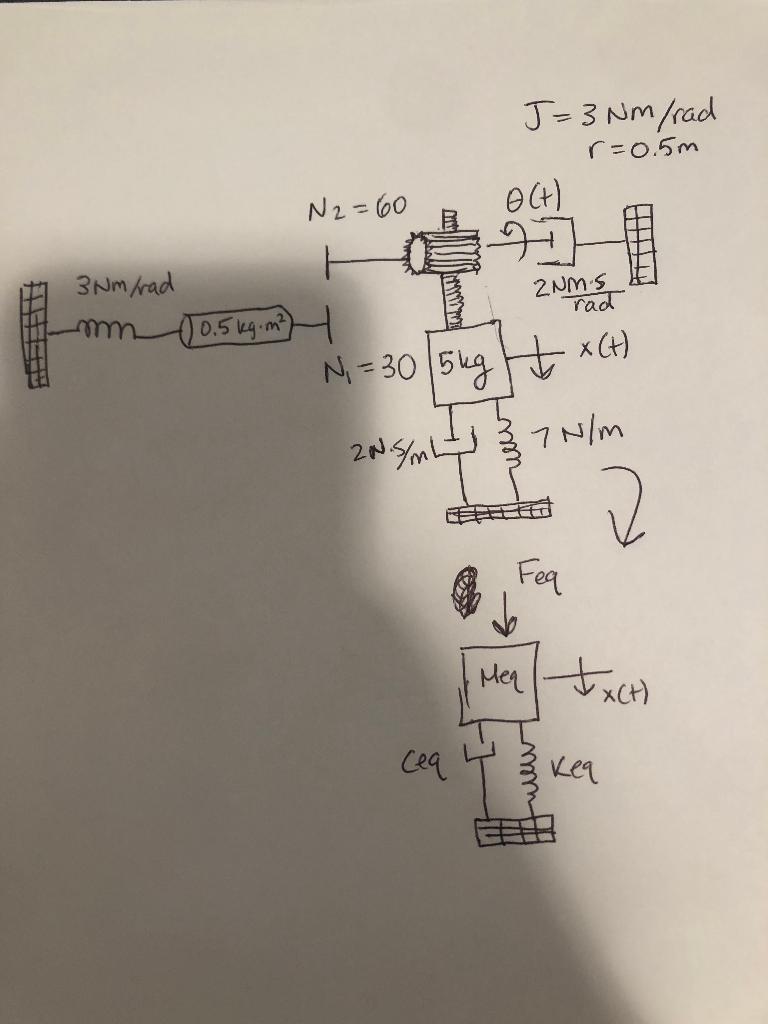 J = 3 Nm/rad
r = 0.5m
N2 = 60
θ(t)
3Nm/rad
2NM·S/rad
0.5 kg·m²
N1 = 30
5kg
x(t)
2N·S/m
7 N/m
Feq
Meq
x(t)
Ceq
Keq